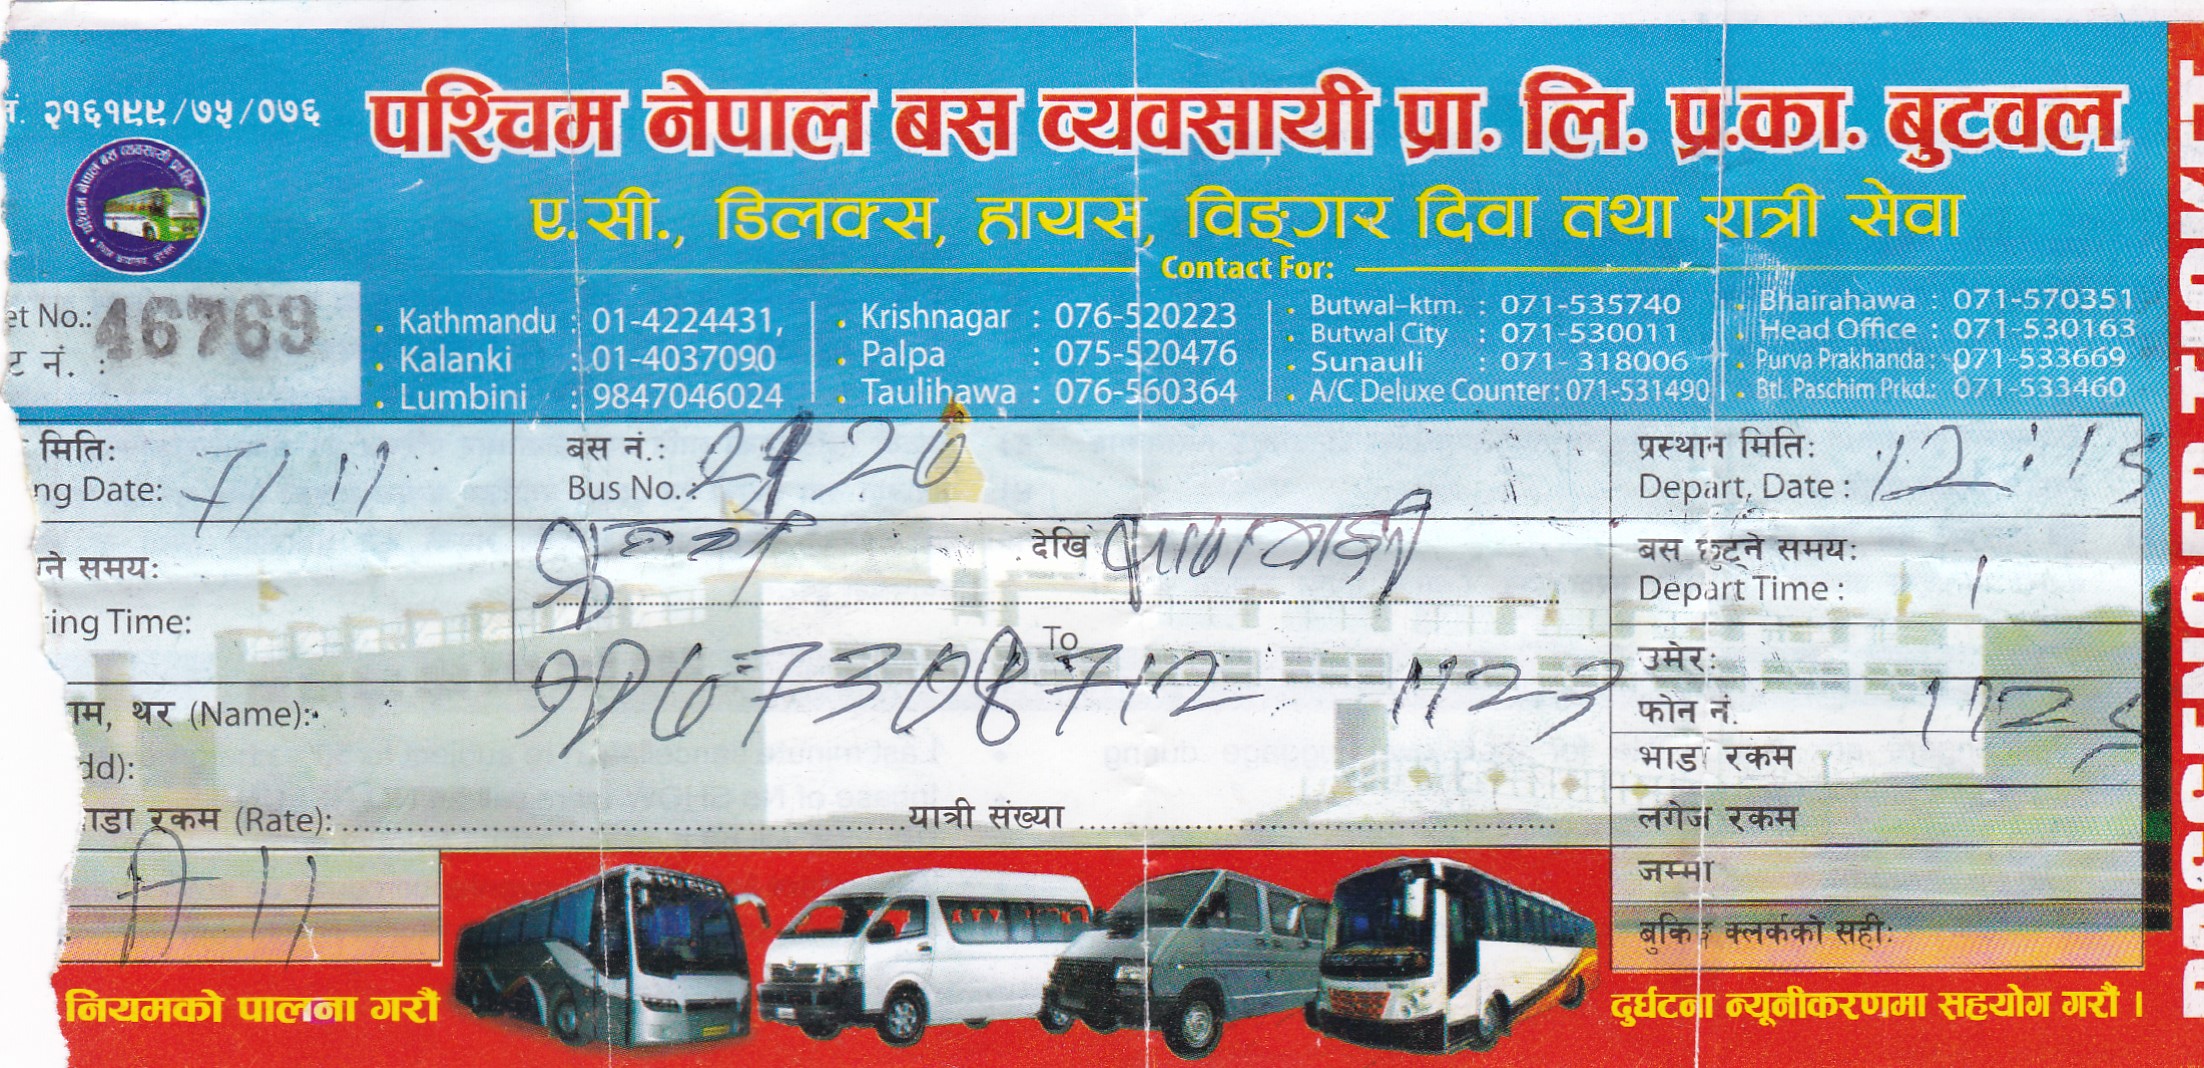 नं. २१६१९९/७५/०७६
पश्चिम नेपाल बस व्यवसायी प्रा. लि. प्र.का. बुटवल
ए.सी., डिलक्स, हायस, विङ्गर दिवा तथा रात्री सेवा
Contact For:
et No.: 46769
ट नं. :
Kathmandu : 01-4224431,
Kalanki : 01-4037090
Lumbini : 9847046024
Krishnagar : 076-520223
Palpa : 075-520476
Taulihawa : 076-560364
Butwal-ktm. : 071-535740
Butwal City : 071-530011
Sunauli : 071- 318006
A/C Deluxe Counter: 071-531490
Bhairahawa : 071-570351
Head Office : 071-530163
Purva Prakhanda : 071-533669
Btl. Paschim Prkd.: 071-533460
मिति:
ng Date: 7/11
बस नं.:
Bus No. 2920
प्रस्थान मिति:
Depart. Date : 12:15
ने समय:
ing Time:
देखि
To
बस छुट्ने समय:
Depart Time : 1
9867308712 1123
उमेर:
ाम, थर (Name):
dd):
फोन नं. 1123
भाडा रकम
ाडा रकम (Rate): यात्री संख्या
लगेज रकम
A 11
जम्मा
बुकिङ क्लर्कको सही:
नियमको पालना गरौं
दुर्घटना न्यूनीकरणमा सहयोग गरौं ।